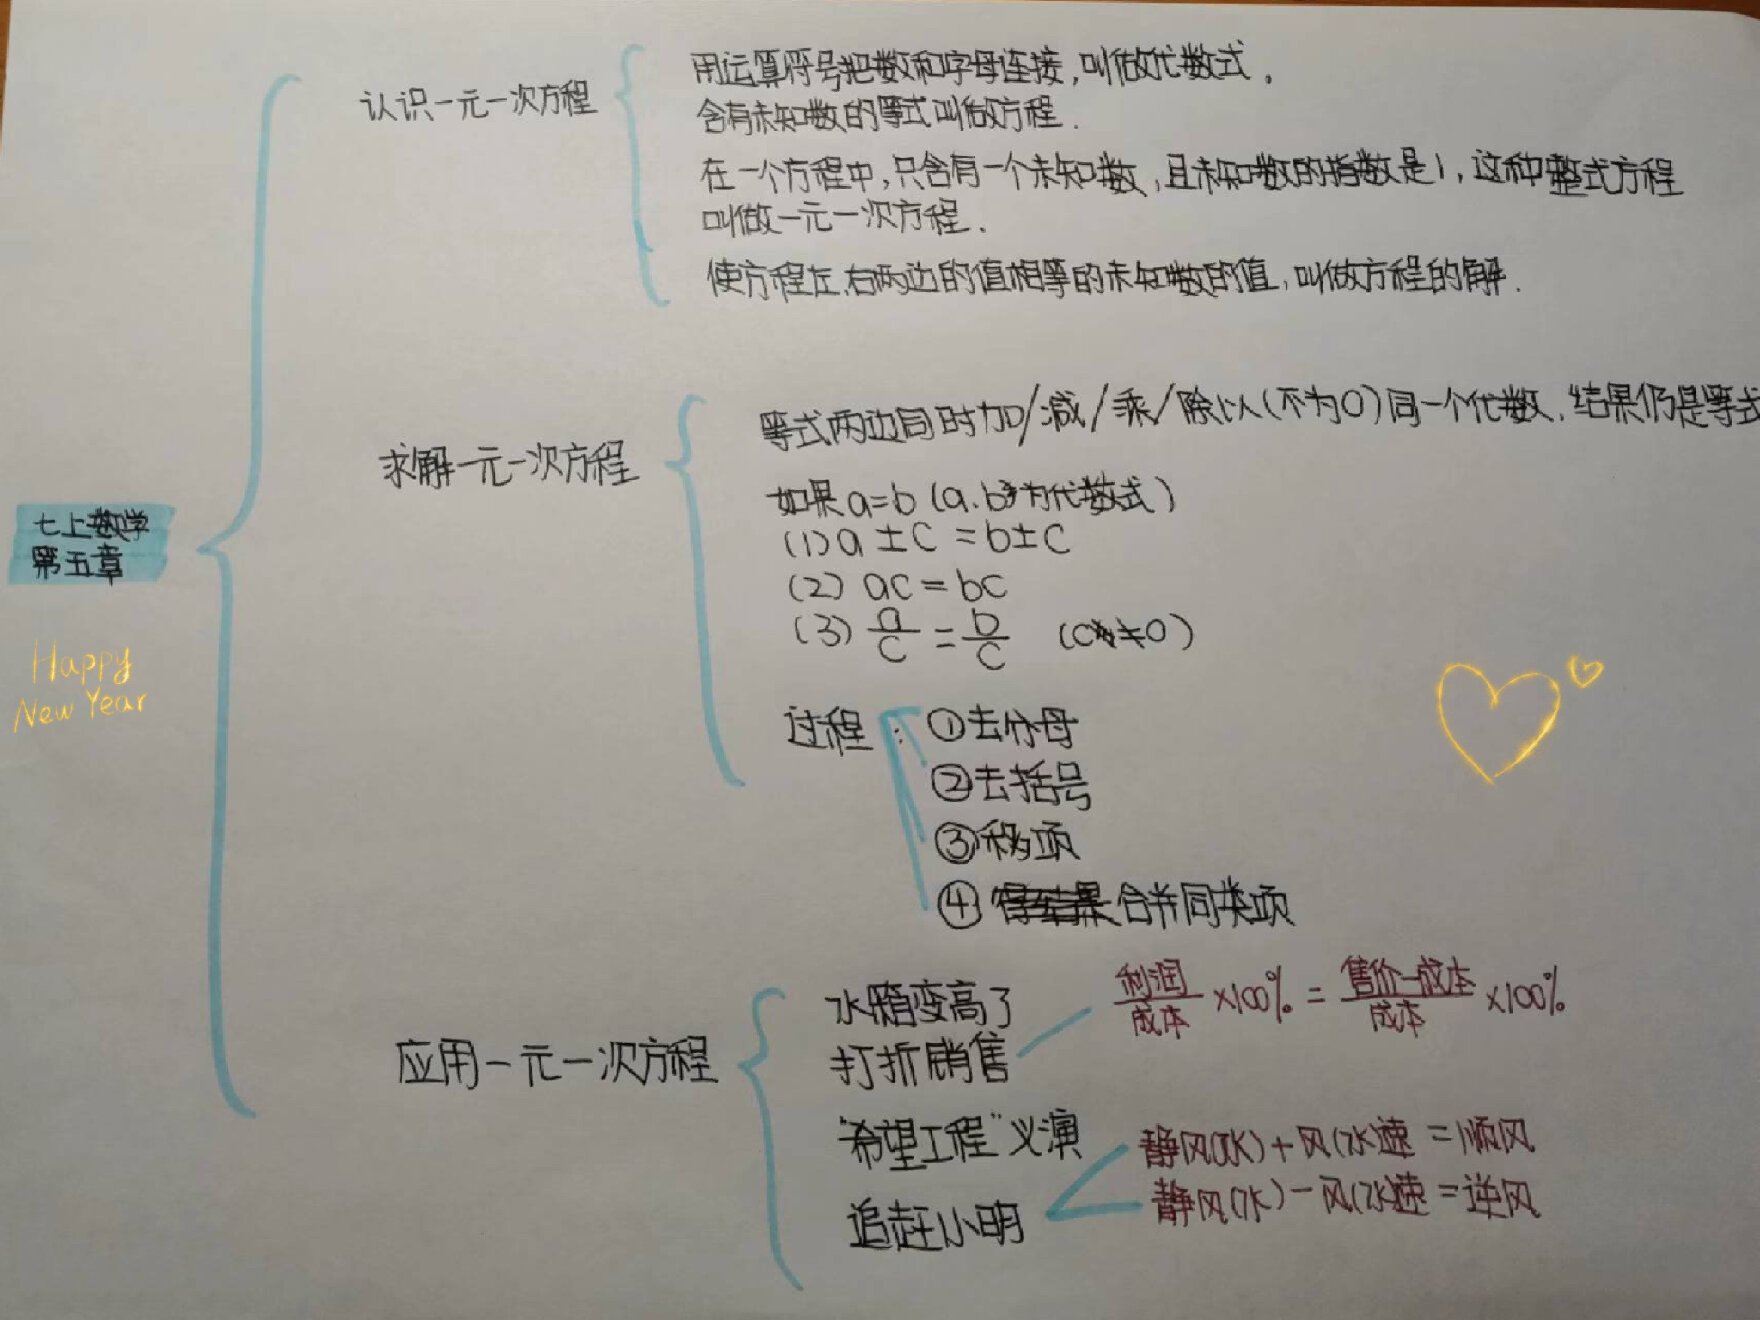 认识一元一次方程
用运算符号把数和字母连接,叫做代数式.
含有未知数的等式叫做方程.
在一个方程中,只含有一个未知数,且未知数的指数是1,这种整式方程
叫做一元一次方程.
使方程左、右两边的值相等的未知数的值,叫做方程的解.
七上数学
第五章
Happy
New Year
求解一元一次方程
等式两边同时加/减/乘/除以(不为0)同一个代数,结果仍是等式
如果a=b(a.b为代数式)
(1)a±c=b±c
(2)ac=bc
(3)a/c=b/c (c≠0)
过程:①去分母
②去括号
③移项
④合并同类项
应用一元一次方程
水箱变高了
打折销售
利润/成本×100%=售价-成本/成本×100%
"希望工程"义演
追赶小明
静风(水)+风(水)速=顺风
静风(水)-风(水)速=逆风